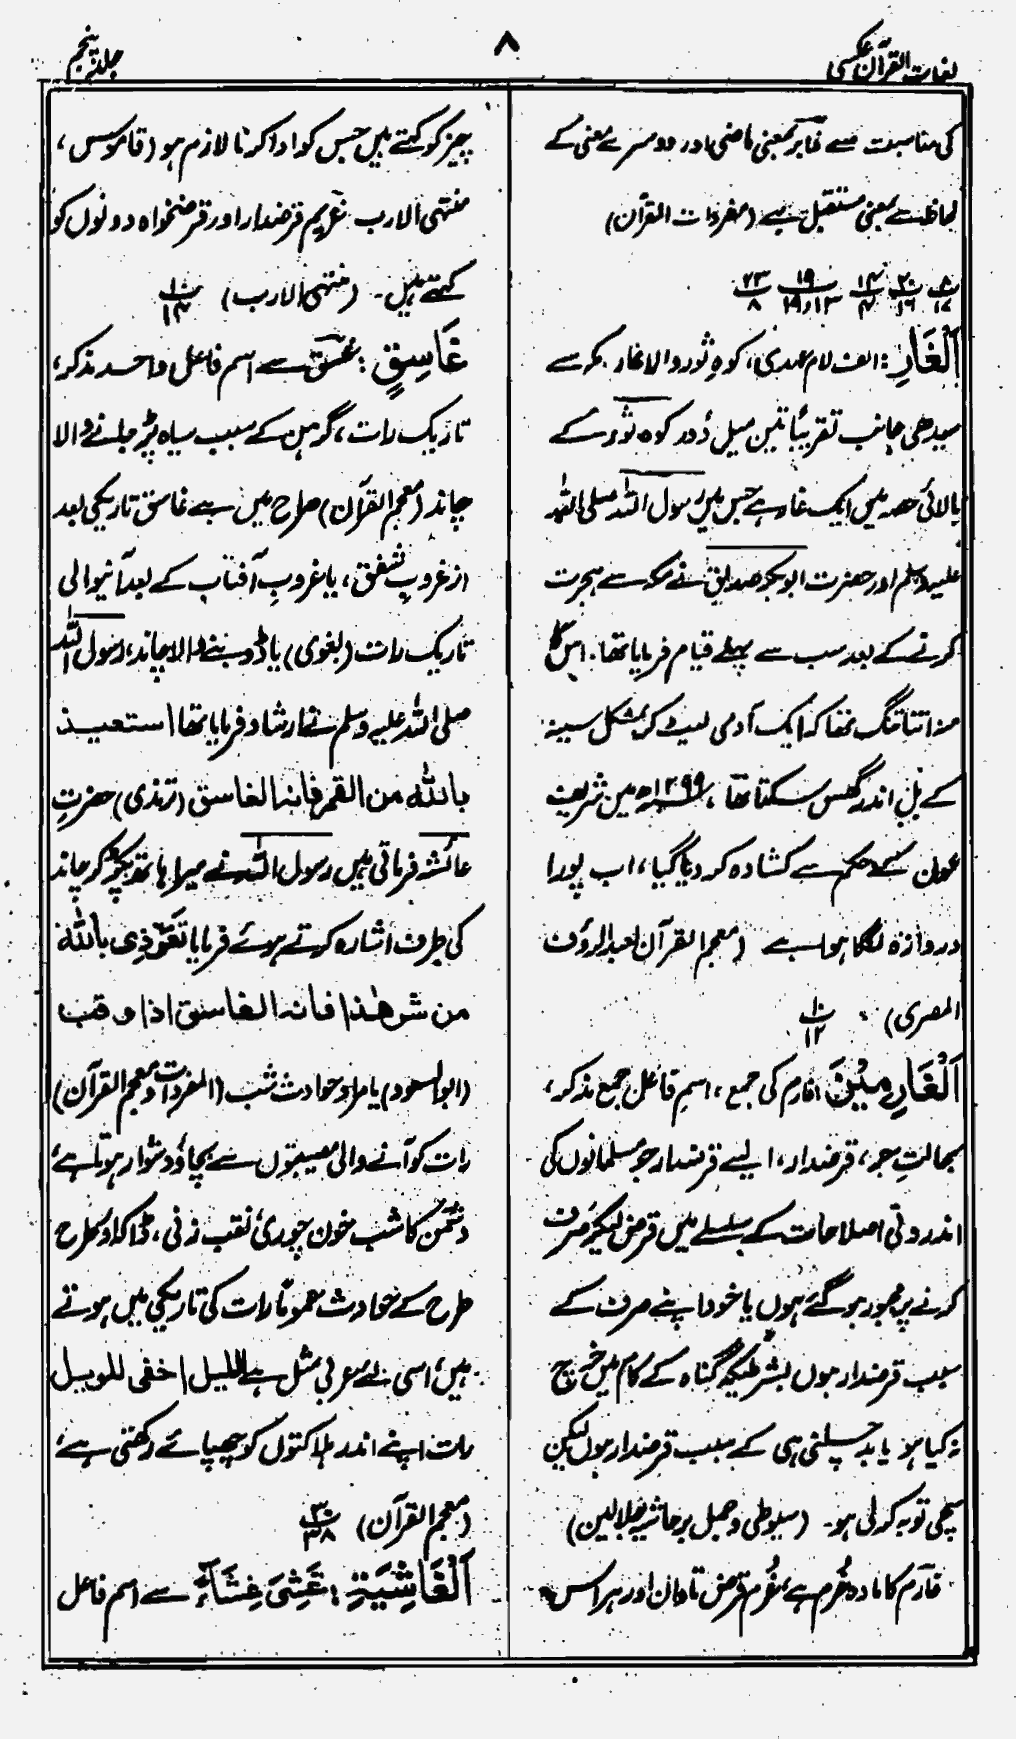 لغات القرآن عکسی
۸
جلد پنجم
کی مناسبت سے غابر بمعنی ماضی اور دوسرے معنی کے
لحاظ سے بمعنی مستقبل ہے (مفردات القرآن)
۸/۱۷ ۲۰/۱۶ ۱۴/۴ ۱۹/۱۹،۱۳ ۲۳/۸
اَلْغَارِ: الف لام عہدی، کوہِ ثور والا غار مکہ سے
سیدھی جانب تقریباً تین میل دُور کوہ ثور کے
بالائی حصہ میں ایک غار ہے جس میں رسول اللہ صلی اللہ
علیہ وسلم اور حضرت ابو بکر صدیق نے مکہ سے ہجرت
کرنے کے بعد سب سے پہلے قیام فرمایا تھا. اس کا
منہ اتنا تنگ تھا کہ ایک آدمی لیٹ کر بمشکل سینہ
کے بل اندر گھس سکتا تھا، ۱۲۹۹ھ میں شریف
عون کے حکم سے کشادہ کر دیا گیا، اب پورا
دروازہ لگا ہوا ہے (معجم القرآن لعبد الرؤف
المصری) ۱۰/۱۲
اَلْغَارِمِیْنَ: غارم کی جمع، اسمِ فاعل جمع مذکر،
بحالتِ جر، قرضدار، ایسے قرضدار جو مسلمانوں کی
اندرونی اصلاحات کے سلسلے میں قرض لیکر صرف
کرنے پر مجبور ہو گئے ہوں یا خود اپنے صرف کے
سبب قرضدار ہوں بشرطیکہ گناہ کے کام میں خرچ
نہ کیا ہو یا بد چلنی ہی کے سبب قرضدار ہوں لیکن
سچی توبہ کر لی ہو۔ (سیوطی و جمل بر حاشیہ جلالین)
غارم کا مادہ غُرم ہے، غُرم قرض تاوان اور ہر اس
چیز کو کہتے ہیں جس کو ادا کرنا لازم ہو (قاموس،
منتہی الارب غریم قرضدار اور قرضخواہ دونوں کو
کہتے ہیں۔ (منتہی الارب) ۱۰/۱۴
غَاسِقٍ: غسق سے اسم فاعل واحد مذکر،
تاریک رات، گرہن کے سبب سیاہ پڑ جانے والا
چاند (معجم القرآن) صراح میں ہے غاسق تاریکی بعد
از غروبِ شفق، یا غروبِ آفتاب کے بعد آنیوالی
تاریک رات (بغوی) یا ڈوبنے والا چاند، رسول اللہ
صلی اللہ علیہ وسلم نے ارشاد فرمایا تھا استعیذ
باللہ من القمر فانہ الغاسق (ترمذی) حضرتِ
عائشہ فرماتی ہیں رسول اللہ نے میرا ہاتھ پکڑ کر چاند
کی طرف اشارہ کرتے ہوئے فرمایا تَعَوَّذِی باللہ
من شر ھٰذا فانہ الغاسق اذا وقب
(ابو السعود) یا مراد حوادث شب (المفردات و معجم القرآن)
رات کو آنے والی مصیبتوں سے بچاؤ دشوار ہوتا ہے
دشمن کا شب خون چوری نقب زنی، ڈاکہ اور طرح
طرح کے حوادث عموماً رات کی تاریکی میں ہوتے
ہیں، اسی لئے عربی مثل ہے اللیل اخفی للویل
رات اپنے اندر ہلاکتوں کو چھپائے رکھتی ہے،
(معجم القرآن) ۳۰/۳۸
اَلْغَاشِیَۃِ: غَشِیَ غِشَاءٌ سے اسم فاعل